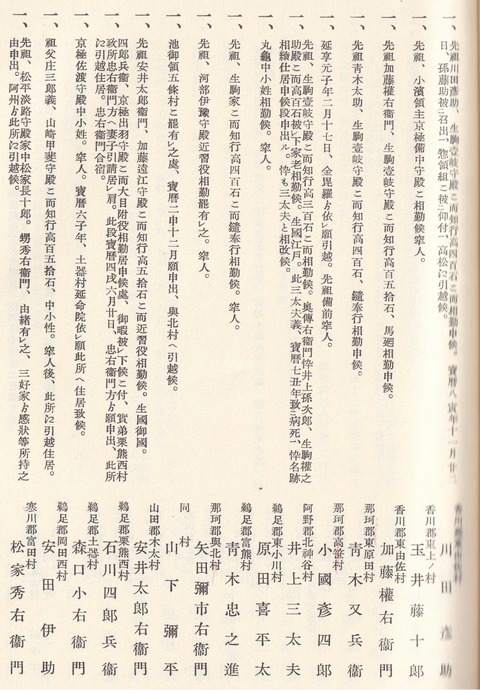 一、先祖川田彥助、生駒壹岐守殿ニ而知行高四百石ニ而相勤申候。寶曆八寅年十一月廿二
日、孫藤助被ニ召出一、惣領組ニ被ニ仰付一、高松に引越候。
香川郡東
川田彥助
一、先祖、小濱領主京極備中守殿ニ相勤候窂人。
香川郡東上ノ村
玉井藤十郎
一、先祖加藤權右衞門、生駒壹岐守殿ニ而知行高百五拾石、馬廻相勤申候。
香川郡東由佐村
加藤權右衞門
一、先祖青木太助、生駒壹岐守殿ニ而知行高四百石、鑓奉行相勤申候。
那珂郡東原田村
青木又兵衞
延享元子年二月十七日、金毘羅ゟ依レ願引越。先祖備前窂人。
那珂郡高篠村
小國彥四郎
一、先祖、生駒壹岐守殿ニ而知行高三百石ニ而相勤候。奥傳右衞門忰井上孫次郎、生駒權之
助殿ニ而高百石被レ下家老相勤候。生國江戶。此三太夫義、寶曆七丑年致ニ病死一、忰名跡
相續仕居申候段申出ル。忰も三太夫と相改候。
阿野郡北神谷村
井上三太夫
一、丸龜中小姓相勤候。窂人。
鵜足郡東小川村
原田喜平太
一、先祖、生駒家ニ而知行高四百石ニ而鑓奉行相勤候。窂人。
鵜足郡富熊村
青木忠之進
一、先祖、河部伊豫守殿近習役相勤罷有レ之。窂人。
那珂郡與北村
矢田彌市右衞門
池御領五條村ニ罷有レ之處、寶曆二申十二月願申出、與北村へ引越候。
同村
山下彌平
一、先祖安井太郎衞門、加藤遠江守殿ニ而知行高五拾石ニ而近習役相勤候。生國御國。
山田郡木太村
安井太郎右衞門
一、四郎兵衞、京極出羽守殿ニ而大目附役相勤居申候處、御暇被レ下候ニ付、實弟栗熊西村
政所忠右衞門方ゟ妻子引請居レ肩、此段寶曆四戌六月廿日、忠右衞門方ゟ願申出、此所
に引越住居。忠右衞門合宿。
鵜足郡栗熊西村
石川四郎兵衞
一、京極佐渡守殿中小姓。窂人。寶曆六子年、土器村延命院依レ願此所へ住居致候。
鵜足郡土器村
森口小右衞門
一、祖父庄三郎義、山崎甲斐守殿ニ而知行高百五拾石、中小性。窂人後、此所に引越住居。
鵜足郡岡田西村
安田伊助
一、先祖、松平淡路守殿家中松家長十郎。甥秀右衞門、由緒有レ之、三好家ゟ感狀等所持之
由申出。阿州ゟ此所に引越候。
寒川郡富田村
松家秀右衞門